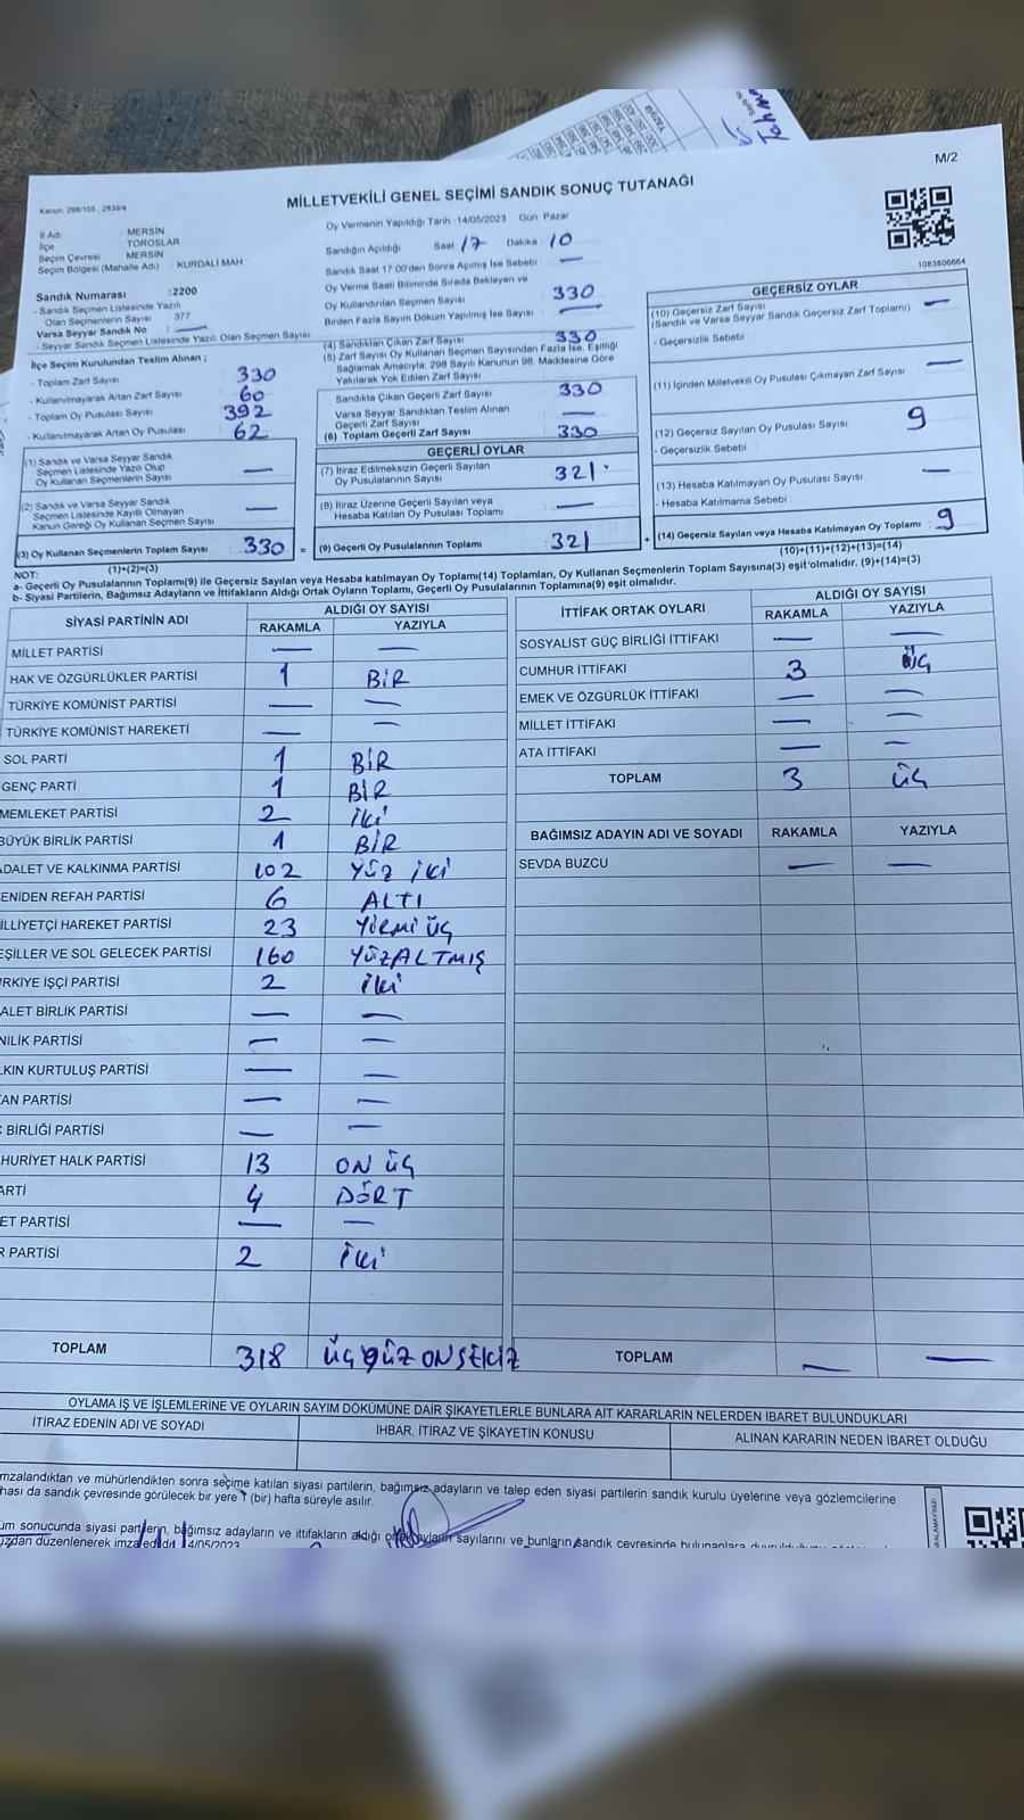 M/2
MİLLETVEKİLİ GENEL SEÇİMİ SANDIK SONUÇ TUTANAĞI
İl Adı : MERSİN
İlçe TOROSLAR
Seçim Çevresi MERSİN
Seçim Bölgesi (Mahalle Adı) KURDALİ MAH
Oy Vermenin Yapıldığı Tarih :14/05/2023 Gün Pazar
Sandığın Açıldığı Saat 17 Dakika 10
Sandık Saat 17 00'den Sonra Açılmış İse Sebebi —
Oy Verme Saati Bitiminde Sırada Bekleyen ve
Oy Kullandırılan Seçmen Sayısı 330
Birden Fazla Sayım Döküm Yapılmış İse Sayısı —
1083600664
Sandık Numarası :2200
- Sandık Seçmen Listesinde Yazılı
Olan Seçmenlerin Sayısı 377
Varsa Seyyar Sandık No : —
- Seyyar Sandık Seçmen Listesinde Yazılı Olan Seçmen Sayısı
İlçe Seçim Kurulundan Teslim Alınan ;
- Toplam Zarf Sayısı 330
- Kullanılmayarak Artan Zarf Sayısı 60
- Toplam Oy Pusulası Sayısı 392
- Kullanılmayarak Artan Oy Pusulası 62
(1) Sandık ve Varsa Seyyar Sandık
Seçmen Listesinde Yazılı Olup
Oy Kullanan Seçmenlerin Sayısı —
(2) Sandık ve Varsa Seyyar Sandık
Seçmen Listesinde Kayıtlı Olmayan
Kanun Gereği Oy Kullanan Seçmen Sayısı —
(3) Oy Kullanan Seçmenlerin Toplam Sayısı 330 =
(1)+(2)=(3)
(4) Sandıktan Çıkan Zarf Sayısı 330
(5) Zarf Sayısı Oy Kullanan Seçmen Sayısından Fazla İse, Eşitliği
Sağlamak Amacıyla; 298 Sayılı Kanunun 98. Maddesine Göre
Yakılarak Yok Edilen Zarf Sayısı
Sandıkta Çıkan Geçerli Zarf Sayısı 330
Varsa Seyyar Sandıktan Teslim Alınan
Geçerli Zarf Sayısı —
(6) Toplam Geçerli Zarf Sayısı 330
GEÇERLİ OYLAR
(7) İtiraz Edilmeksizin Geçerli Sayılan
Oy Pusulalarının Sayısı 321
(8) İtiraz Üzerine Geçerli Sayılan veya
Hesaba Katılan Oy Pusulası Toplamı —
(9) Geçerli Oy Pusulalarının Toplamı 321 +
GEÇERSİZ OYLAR
(10) Geçersiz Zarf Sayısı
(Sandık ve Varsa Seyyar Sandık Geçersiz Zarf Toplamı) —
- Geçersizlik Sebebi
(11) İçinden Milletvekili Oy Pusulası Çıkmayan Zarf Sayısı —
(12) Geçersiz Sayılan Oy Pusulası Sayısı 9
- Geçersizlik Sebebi
(13) Hesaba Katılmayan Oy Pusulası Sayısı —
- Hesaba Katılmama Sebebi
(14) Geçersiz Sayılan veya Hesaba Katılmayan Oy Toplamı 9
(10)+(11)+(12)+(13)=(14)
NOT:
a- Geçerli Oy Pusulalarının Toplamı(9) ile Geçersiz Sayılan veya Hesaba katılmayan Oy Toplamı(14) Toplamları, Oy Kullanan Seçmenlerin Toplam Sayısına(3) eşit olmalıdır. (9)+(14)=(3)
b- Siyasi Partilerin, Bağımsız Adayların ve İttifakların Aldığı Ortak Oyların Toplamı, Geçerli Oy Pusulalarının Toplamına(9) eşit olmalıdır.
SİYASİ PARTİNİN ADI ALDIĞI OY SAYISI
RAKAMLA YAZIYLA
MİLLET PARTİSİ — —
HAK VE ÖZGÜRLÜKLER PARTİSİ 1 BİR
TÜRKİYE KOMÜNİST PARTİSİ — —
TÜRKİYE KOMÜNİST HAREKETİ — —
SOL PARTİ 1 BİR
GENÇ PARTİ 1 BİR
MEMLEKET PARTİSİ 2 İki
BÜYÜK BİRLİK PARTİSİ 1 BİR
ADALET VE KALKINMA PARTİSİ 102 YÜZ İKİ
ENİDEN REFAH PARTİSİ 6 ALTI
İLLİYETÇİ HAREKET PARTİSİ 23 YİRMİ ÜÇ
EŞİLLER VE SOL GELECEK PARTİSİ 160 YÜZALTMIŞ
RKİYE İŞÇİ PARTİSİ 2 İki
ALET BİRLİK PARTİSİ — —
NİLİK PARTİSİ — —
KIN KURTULUŞ PARTİSİ — —
AN PARTİSİ — —
BİRLİĞİ PARTİSİ — —
HURİYET HALK PARTİSİ 13 ON ÜÇ
ARTİ 4 DÖRT
ET PARTİSİ — —
R PARTİSİ 2 İki
TOPLAM 318 ÜÇ YÜZ ONSEKİZ
İTTİFAK ORTAK OYLARI ALDIĞI OY SAYISI
RAKAMLA YAZIYLA
SOSYALİST GÜÇ BİRLİĞİ İTTİFAKI — —
CUMHUR İTTİFAKI 3 ÜÇ
EMEK VE ÖZGÜRLÜK İTTİFAKI — —
MİLLET İTTİFAKI — —
ATA İTTİFAKI — —
TOPLAM 3 ÜÇ
BAĞIMSIZ ADAYIN ADI VE SOYADI RAKAMLA YAZIYLA
SEVDA BUZCU — —
TOPLAM — —
OYLAMA İŞ VE İŞLEMLERİNE VE OYLARIN SAYIM DÖKÜMÜNE DAİR ŞİKAYETLERLE BUNLARA AİT KARARLARIN NELERDEN İBARET BULUNDUKLARI
İTİRAZ EDENİN ADI VE SOYADI İHBAR, İTİRAZ VE ŞİKAYETİN KONUSU ALINAN KARARIN NEDEN İBARET OLDUĞU
mzalandıktan ve mühürlendikten sonra seçime katılan siyasi partilerin, bağımsız adayların ve talep eden siyasi partilerin sandık kurulu üyelerine veya gözlemcilerine
hası da sandık çevresinde görülecek bir yere 1 (bir) hafta süreyle asılır.
üm sonucunda siyasi partilerin, bağımsız adayların ve ittifakların aldığı sayılarını ve bunların sandık çevresinde
düzenlenerek imza edildi. 14/05/2023